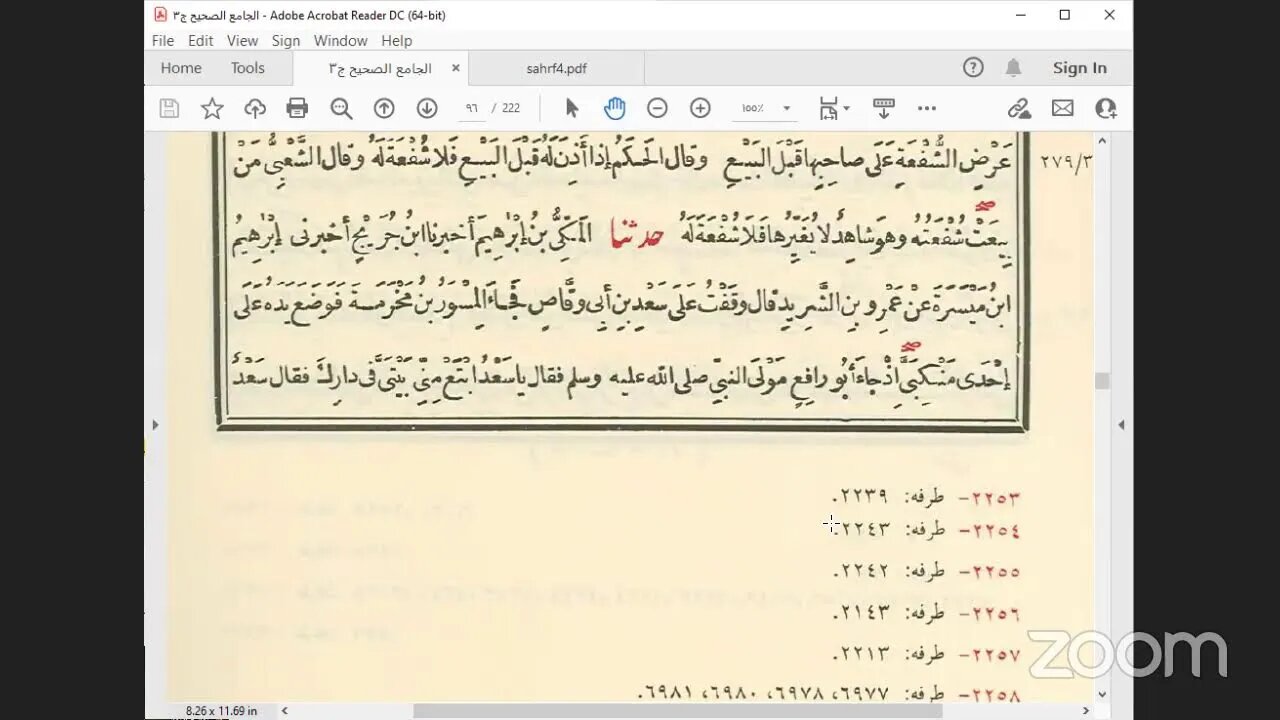 الجامع الصحيح ج٣ - Adobe Acrobat Reader DC (64-bit)
File Edit View Sign Window Help
Home Tools الجامع الصحيح ج٣ × sahrf4.pdf Sign In
٩٦ / 222 ١٠٠٪
عَرْضِ الشُّفْعَةِ عَلَى صَاحِبِهَا قَبْلَ البَيْعِ وقال الحَكَمُ إذا أَذِنَ لَهُ قَبْلَ البَيْعِ فَلَا شُفْعَةَ لَهُ وقال الشَّعْبِيُّ مَنْ
٢٧٩/٣
بِيعَتْ شُفْعَتُهُ وهْوَ شاهِدٌ لا يُغَيِّرُها فَلَا شُفْعَةَ لَهُ حدثنا المَكِّيُّ بنُ إبْرٰهِيمَ أخبرنا ابنُ جُرَيْجٍ أخبرنى إبْرٰهِيمُ
ابنُ مَيْسَرَةَ عَنْ عَمْرِو بنِ الشَّرِيدِ قال وقَفْتُ عَلَى سَعْدِ بنِ أبى وقَّاصٍ فَجَاءَ المِسْوَرُ بنُ مَخْرَمَةَ فَوَضَعَ يَدَهُ عَلَى
إحْدَى مَنْكِبَىَّ إذْ جاءَ أبُو رافِعٍ مَوْلَى النبىِّ صلى الله عليه وسلم فقال يا سَعْدُ ابْتَعْ مِنِّى بَيْتَىَّ فى دارِكَ فقال سَعْدٌ
٢٢٥٣- طرفه: ٢٢٣٩.
٢٢٥٤- طرفه: ٢٢٤٣.
٢٢٥٥- طرفه: ٢٢٤٢.
٢٢٥٦- طرفه: ٢١٤٣.
٢٢٥٧- طرفه: ٢٢١٣.
٢٢٥٨- طرفه: ٦٩٧٧، ٦٩٧٨، ٦٩٨٠، ٦٩٨١.
zoom
8.26 x 11.69 in